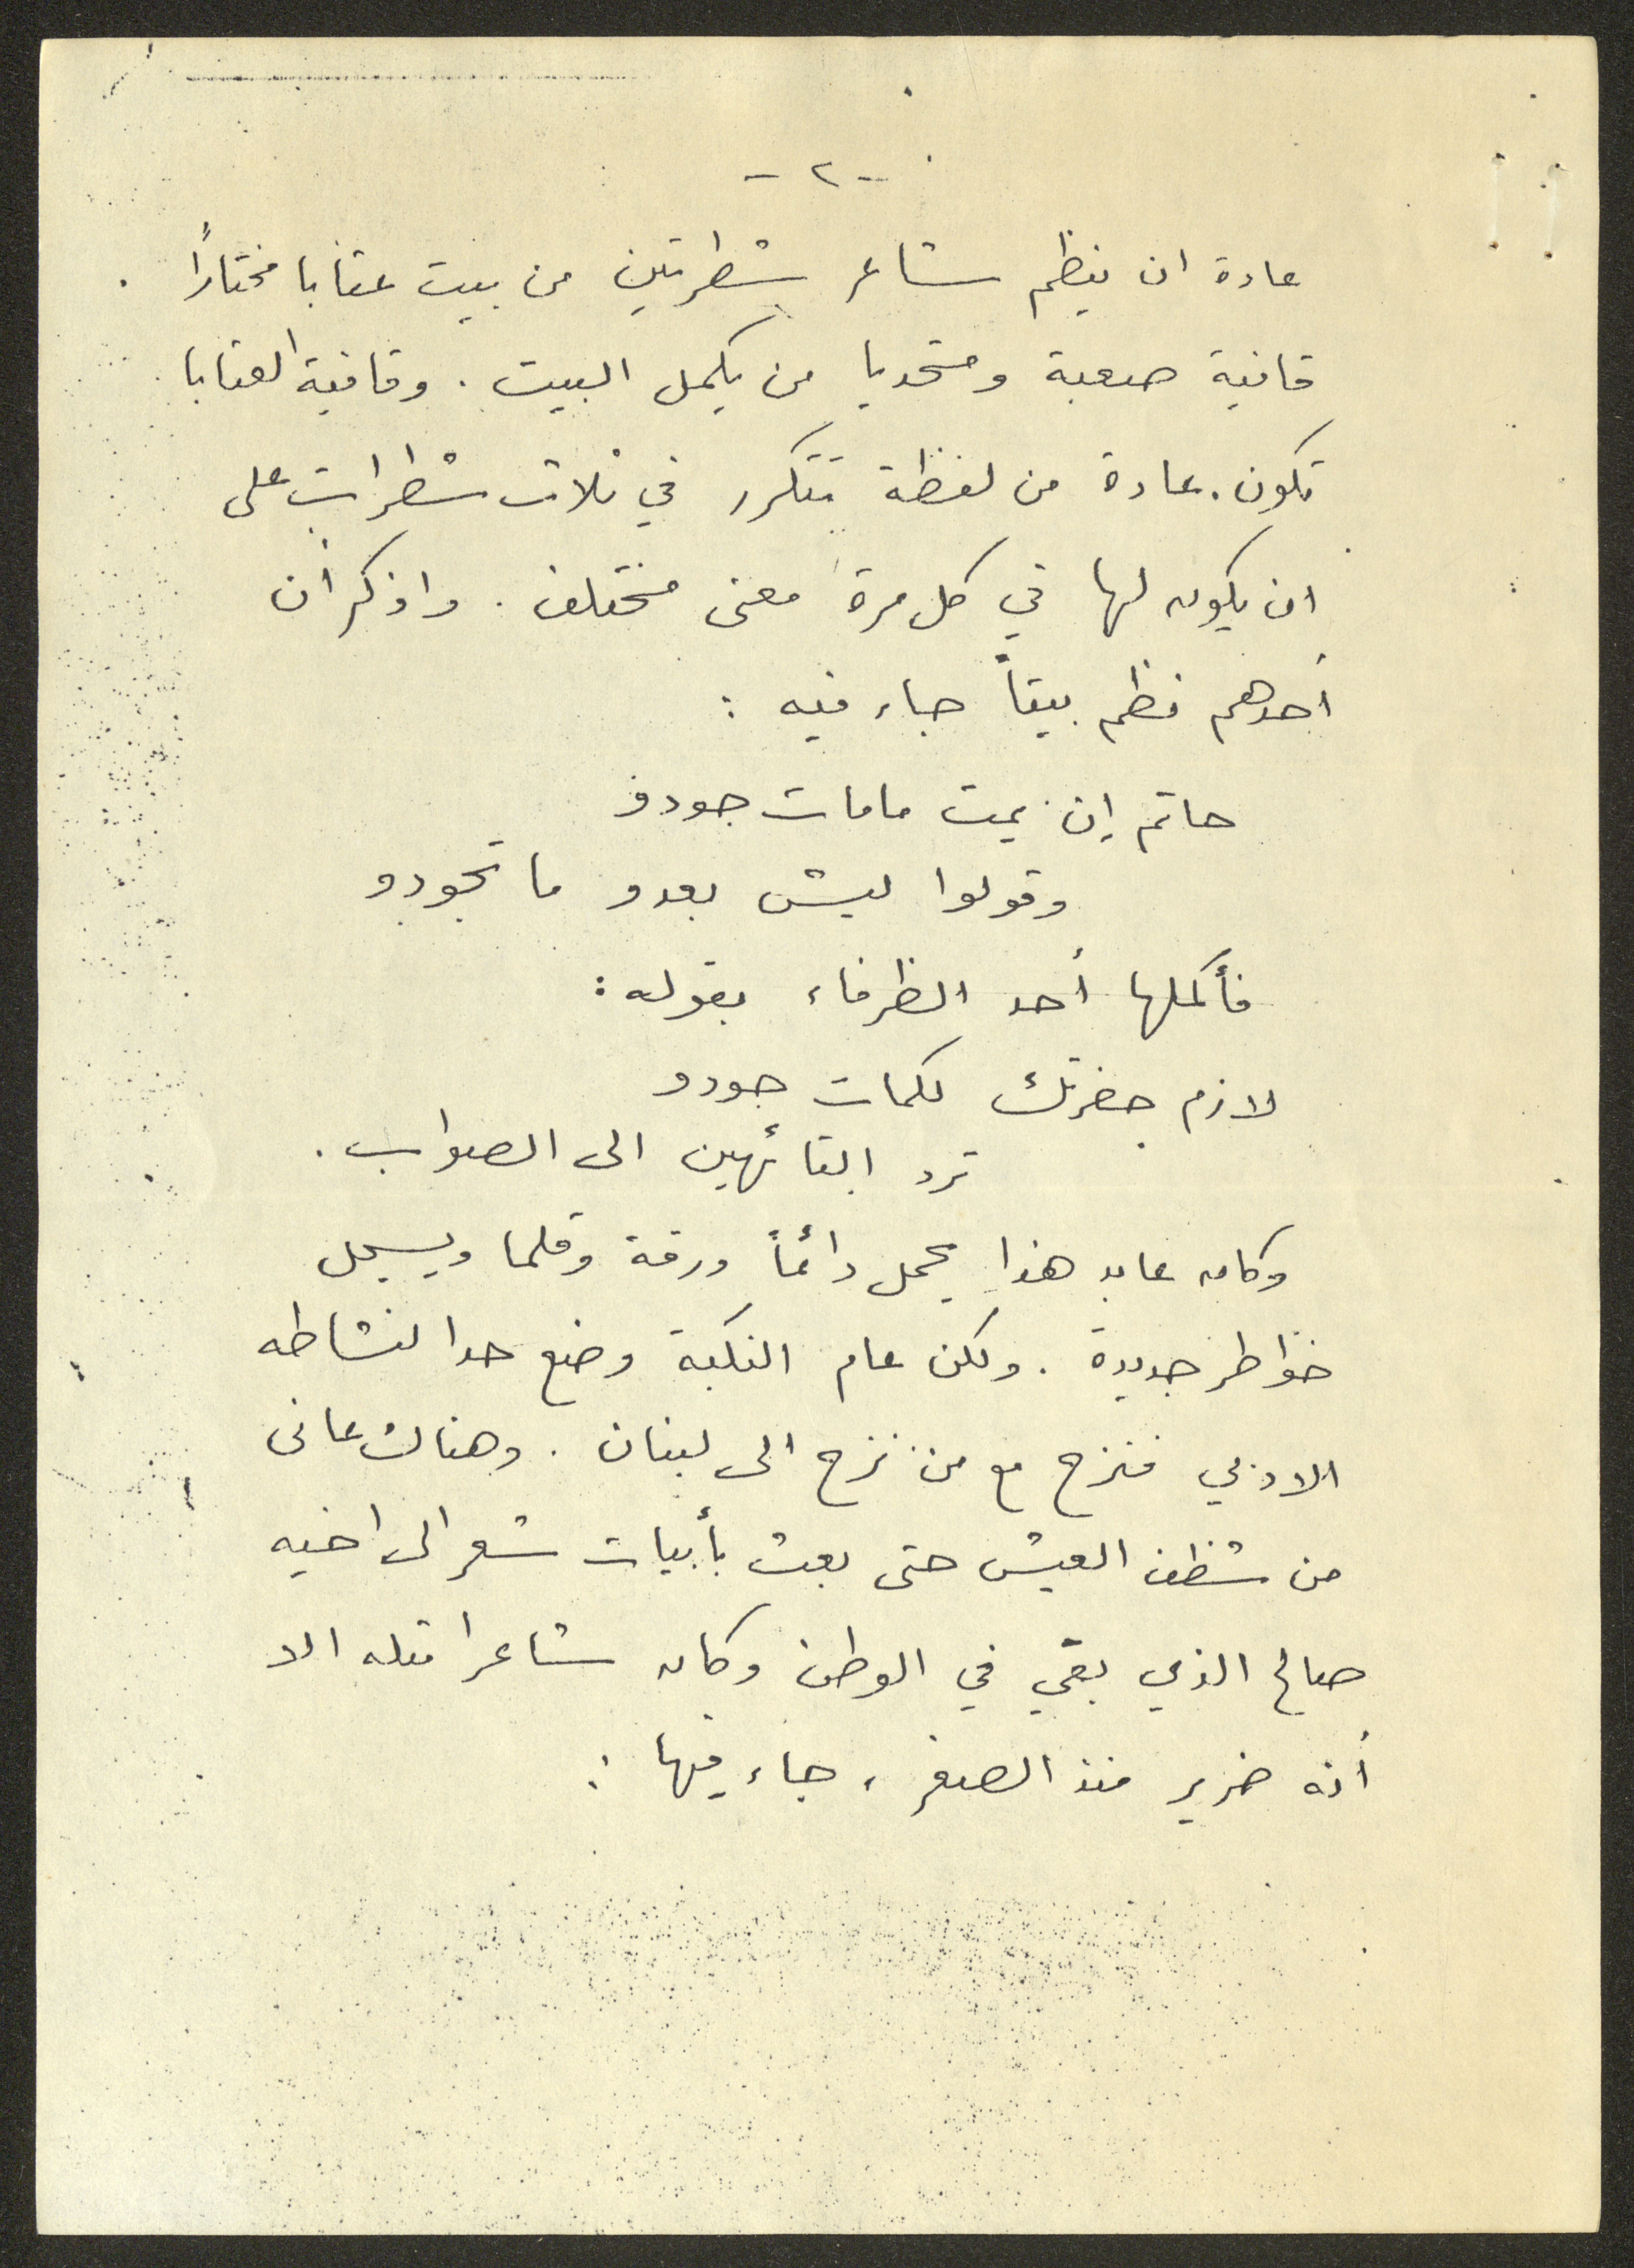 - ٢ -
عادة ان ينظم شاعر شطرتين من بيت عتابا مختاراً
قافية صعبة ومتحديا من يكمل البيت . وقافية العتابا
تكون عادة من لفظة تتكرر في ثلاث شطرات على
ان يكون لها في كل مرة معنى مختلف . واذكر أن
أحدهم نظم بيتاً جاء فيه :
حاتم إن يمت مامات جودو
وقولوا ليش بعدو ما تجودو
فأكملها أحد الظرفاء بقوله :
لازم حضرتك لكمات جودو
ترد التائهين الى الصواب .
وكان عابد هذا يحمل دائماً ورقة وقلما ويسجل
خواطر جديدة . ولكن عام النكبة وضع حدا لنشاطه
الادبي فنزح مع من نزح الى لبنان . وهناك عانى
من شظف العيش حتى بعث بأبيات شعر الى اخيه
صالح الذي بقي في الوطن وكان شاعرا مثله الا
أنه ضرير منذ الصغر ، جاء فيها :